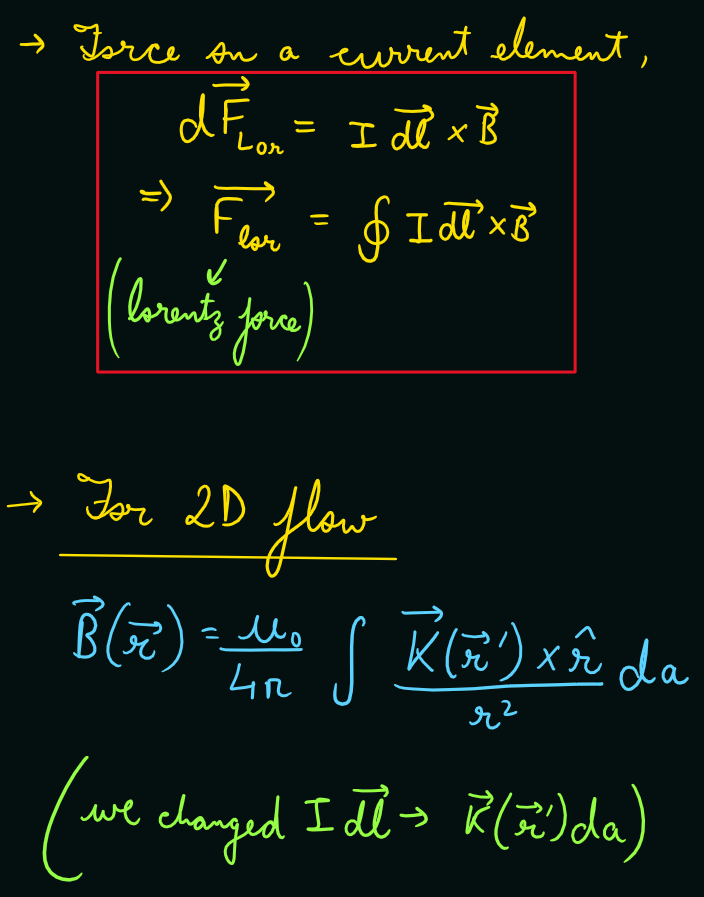 → Force on a current element,
dF⃗_Lor = I dl⃗ × B⃗
⇒ F⃗_lor = ∮ I dl⃗ × B⃗
(lorentz force)
→ For 2D flow
B⃗(r⃗) = μ₀/4π ∫ K⃗(r⃗') × r̂ / r² da
(we changed I dl⃗ → K⃗(r⃗')da)